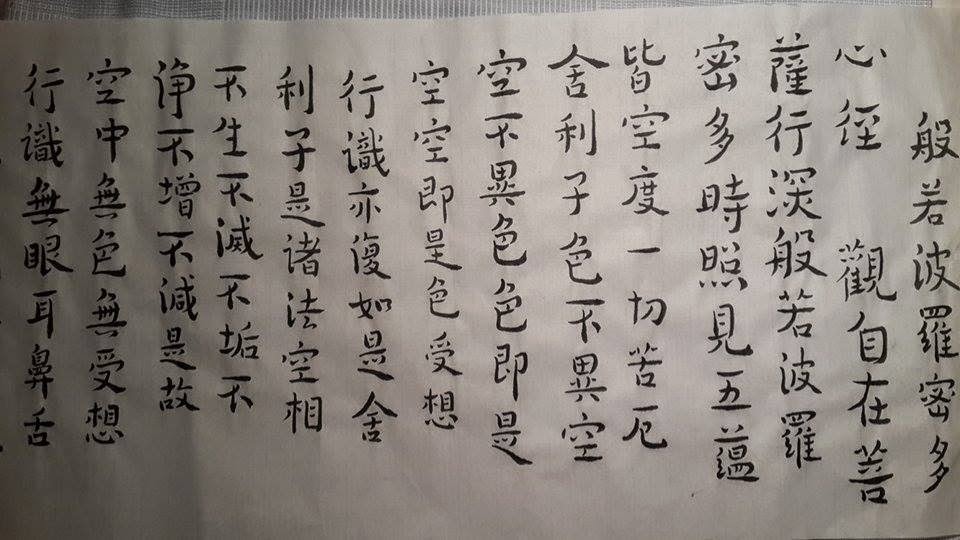 般若波羅密多
心徑 觀自在菩
薩行深般若波羅
密多時照見五蘊
皆空度一切苦厄
舍利子色不異空
空不異色色即是
空空即是色受想
行識亦復如是舍
利子是诸法空相
不生不滅不垢不
淨不增不減是故
空中無色無受想
行識無眼耳鼻舌